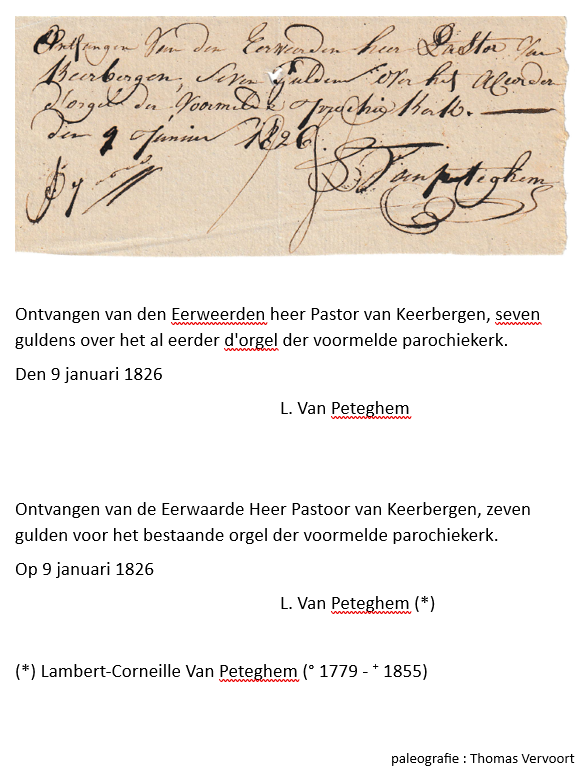 Ontfangen Van den Eerweerden heer Pastor Van
Keerbergen, seven gulden over het
d'orgel der Voormelde prochie kerk.
den 9 1826.
Vanpeteghem
Ontvangen van den Eerweerden heer Pastor van Keerbergen, seven
guldens over het al eerder d'orgel der voormelde parochiekerk.
Den 9 januari 1826
L. Van Peteghem
Ontvangen van de Eerwaarde Heer Pastoor van Keerbergen, zeven
gulden voor het bestaande orgel der voormelde parochiekerk.
Op 9 januari 1826
L. Van Peteghem (*)
(*) Lambert-Corneille Van Peteghem (° 1779 - ⁺ 1855)
paleografie : Thomas Vervoort